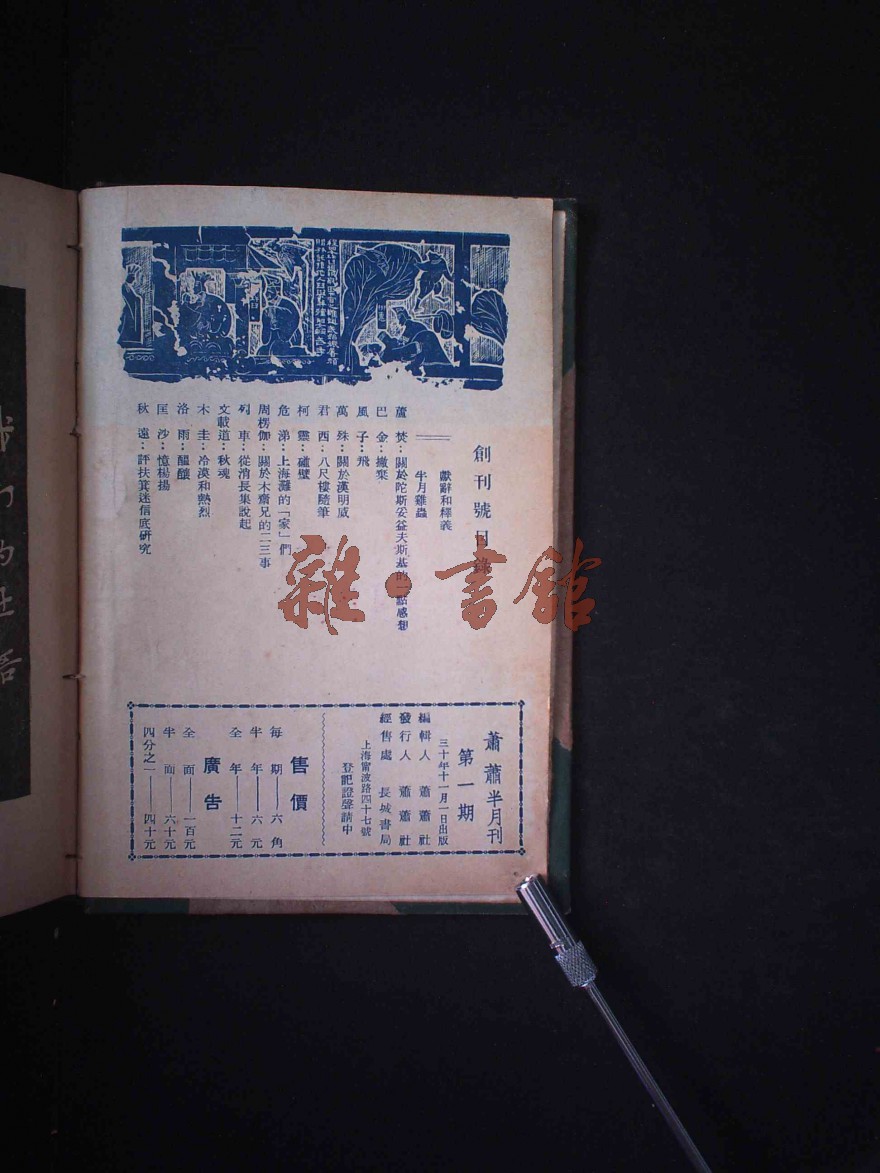 創刊號目錄
獻辭和釋義
半月雞蟲
蘆焚：關於陀斯妥益夫斯基的一點感想
巴金：撇棄
風子：飛
萬殊：關於漢明威
君西：八尺樓隨筆
柯靈：碰壁
危涕：上海灘的「家」們
周楞伽：關於木齋兄的二三事
列車：從消長集說起
文載道：秋魂
木圭：冷漠和熱烈
洛雨：醞釀
匡沙：憶楊揚
秋遠：評扶箕迷信底硏究
雜·書館
蕭蕭半月刊
第一期
三十年十一月一日出版
編輯人 蕭蕭社
發行人 蕭蕭社
經售處 長城書局
上海甯波路四十七號
登記證聲請中
售價
每期——六角
半年——六元
全年——十二元
廣告
全面——一百元
半面——六十元
四分之一——四十元